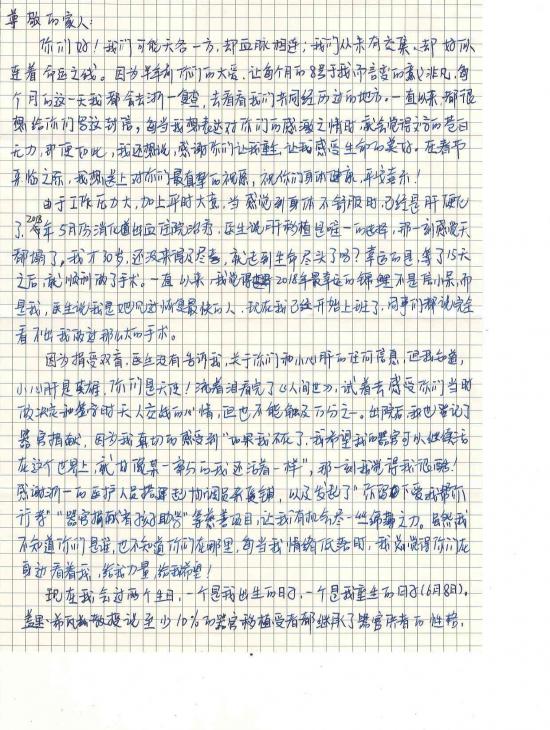 尊敬的家人:
你们好!我们可能天各一方,却血脉相连;我们从未有交集,却好似
连着命运之线。因为是有你们的大爱,让每个月的8号于我而言意义非凡,每
个月的这一天我都会去浙一复查,去看看我们共同经历过的地方。一直以来都很
想给你们写这封信,每当我想表达对你们的感激之情时,就会觉得文字的苍白
无力,即便如此,我还想说,感谢你们让我重生,让我感受生命的美好。在春节
来临之际,我想送上对你们最真挚的祝愿,祝你们身体健康,平安喜乐!
由于工作压力大,加上平时大意,当感觉到身体不舒服时,已经是肝硬化
了,2018年5月份消化道出血住院治疗,医生说肝移植是唯一的选择,那一刻感觉天
都塌了。我才30岁,还没来得及尽孝,就走到生命尽头了吗?幸运的是等了15天
之后,就顺利做了手术。一直以来,我觉得2018年最幸运的锦鲤不是信小呆,而
是我,医生说我是她见过恢复最快的人,现在我已经开始上班了,同事们都说完全
看不出我做过那么大的手术。
因为捐受双盲,医生没有告诉我,关于你们和小心肝的任何信息,但我知道,
小心肝是英雄,你们是天使!流着泪看完了《人间世》,试着去感受你们当时
做决定和签字时天人交战的心情,但也不能触及万分之一。出院后,我也登记了
器官捐献,因为我真切的感受到“如果我不在了,我希望我的器官可以继续活
在这个世界上,就由它某一部分的我还活着一样”,那一刻我觉得我很酷!
感谢浙一的医护人员搭建起协调员来复铺,以及发起了“你留下爱我帮你
行孝”“器官捐献者孩子助学”等慈善项目,让我有机会尽一丝绵薄之力。虽然我
不知道你们是谁,也不知道你们在哪里,每当我情绪低落时,我总觉得你们在
身边看着我,给我力量,给我希望!
现在我会过两个生日,一个是我出生的日子,一个是我重生的日子(6月8日)。
盖里·希瓦兹教授说至少10%的器官移植受者都继承了器官所有的性格,